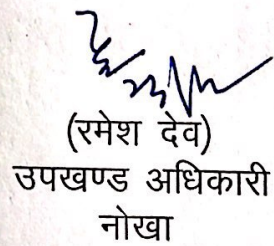 (रमेश देव)
उपखण्ड अधिकारी
नोखा